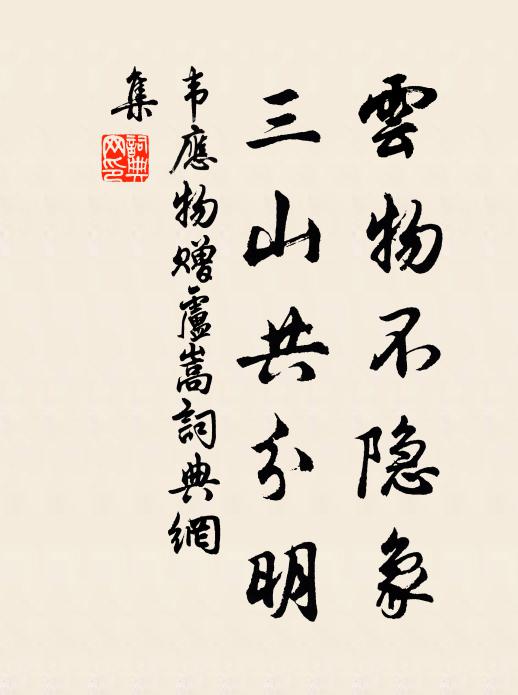 雲物不隐象
三山共分明
韦應物赠盧嵩詞典網
集
詞典
网印